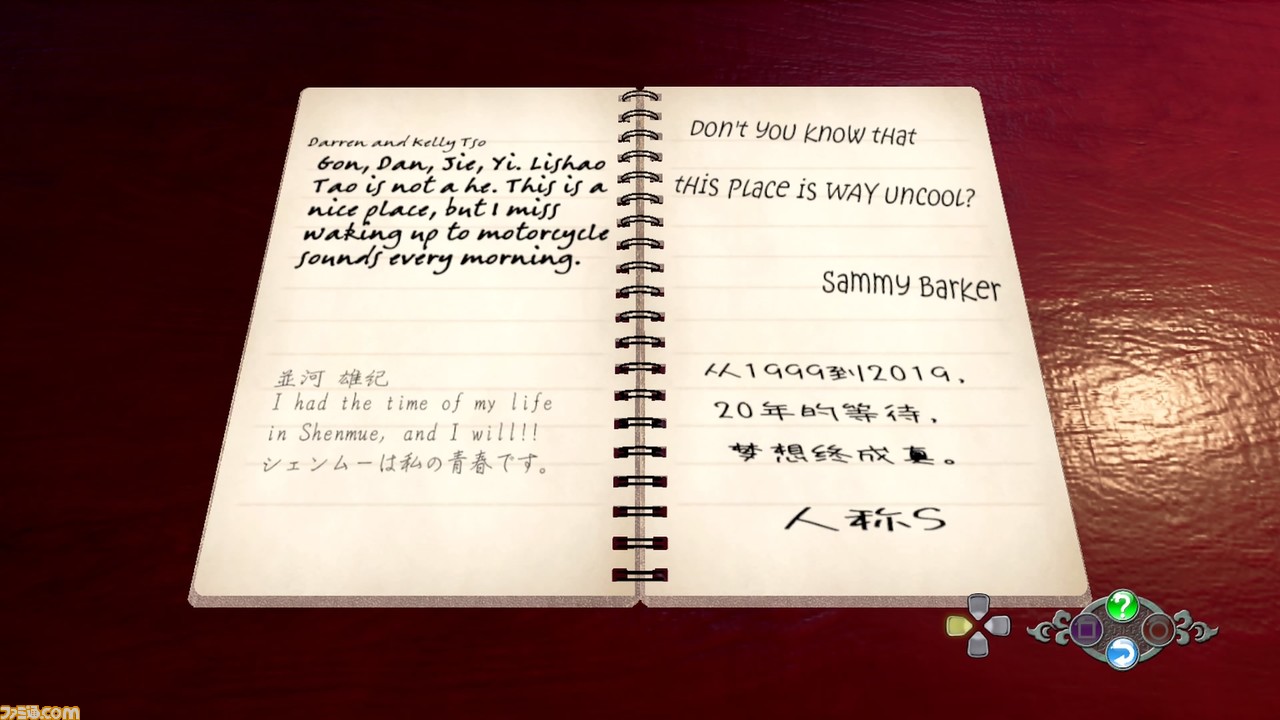 Darren and Kelly Tso
Gon, Dan, Jie, Yi. Lishao
Tao is not a he. This is a
nice place, but I miss
waking up to motorcycle
sounds every morning.
並河 雄紀
I had the time of my life
in Shenmue, and I will!!
シェンムーは私の青春です。
Don't you know that
this place is WAY uncool?
Sammy Barker
从1999到2019，
20年的等待，
梦想终成真。
人称S
?
ファミ通.com